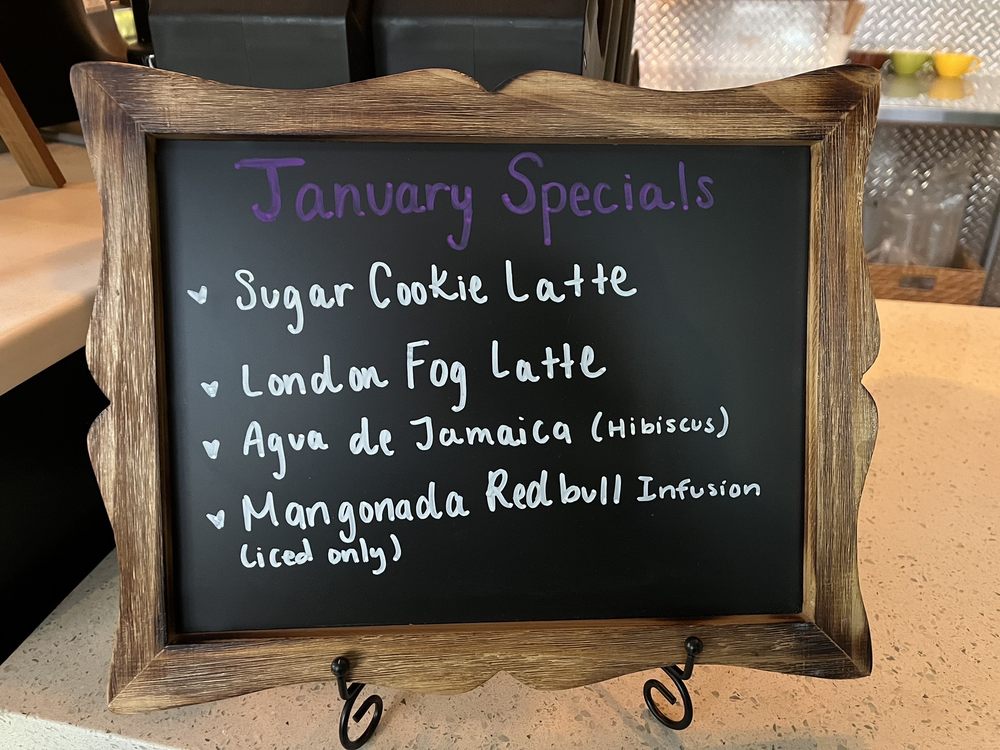 January Specials
Sugar Cookie Latte
London Fog Latte
Agua de Jamaica (Hibiscus)
Mangonada Redbull Infusion
(iced only)